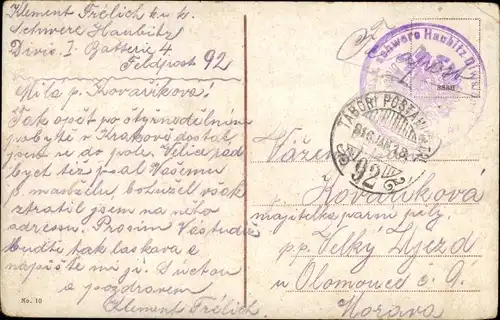 Klement Frélich k. u. k.
Schwere Haubitz
Divis. I. Batterie 4
Feldpost 92
Milá p. Kovaříková!
Tak opět po čtyřnedělním
pobytě v Krakově dostal
jsem se do pole. Velice rád
bych též psal Vašemu
p. manželu bohužel však
ztratil jsem na něho
adressu. Prosím Vás tudíž
buďte tak laskava a
napište mi ji. S úctou
a pozdravem
Klement Frélich.
No. 10
schwere Haubitz Div.
TÁBORI POSTAHIV.
916 JAN. 18
92
Vážená
Kovaříková
majitelka parní pily
p.p. Velký Újezd
u Olomouce č. 9.
Morava